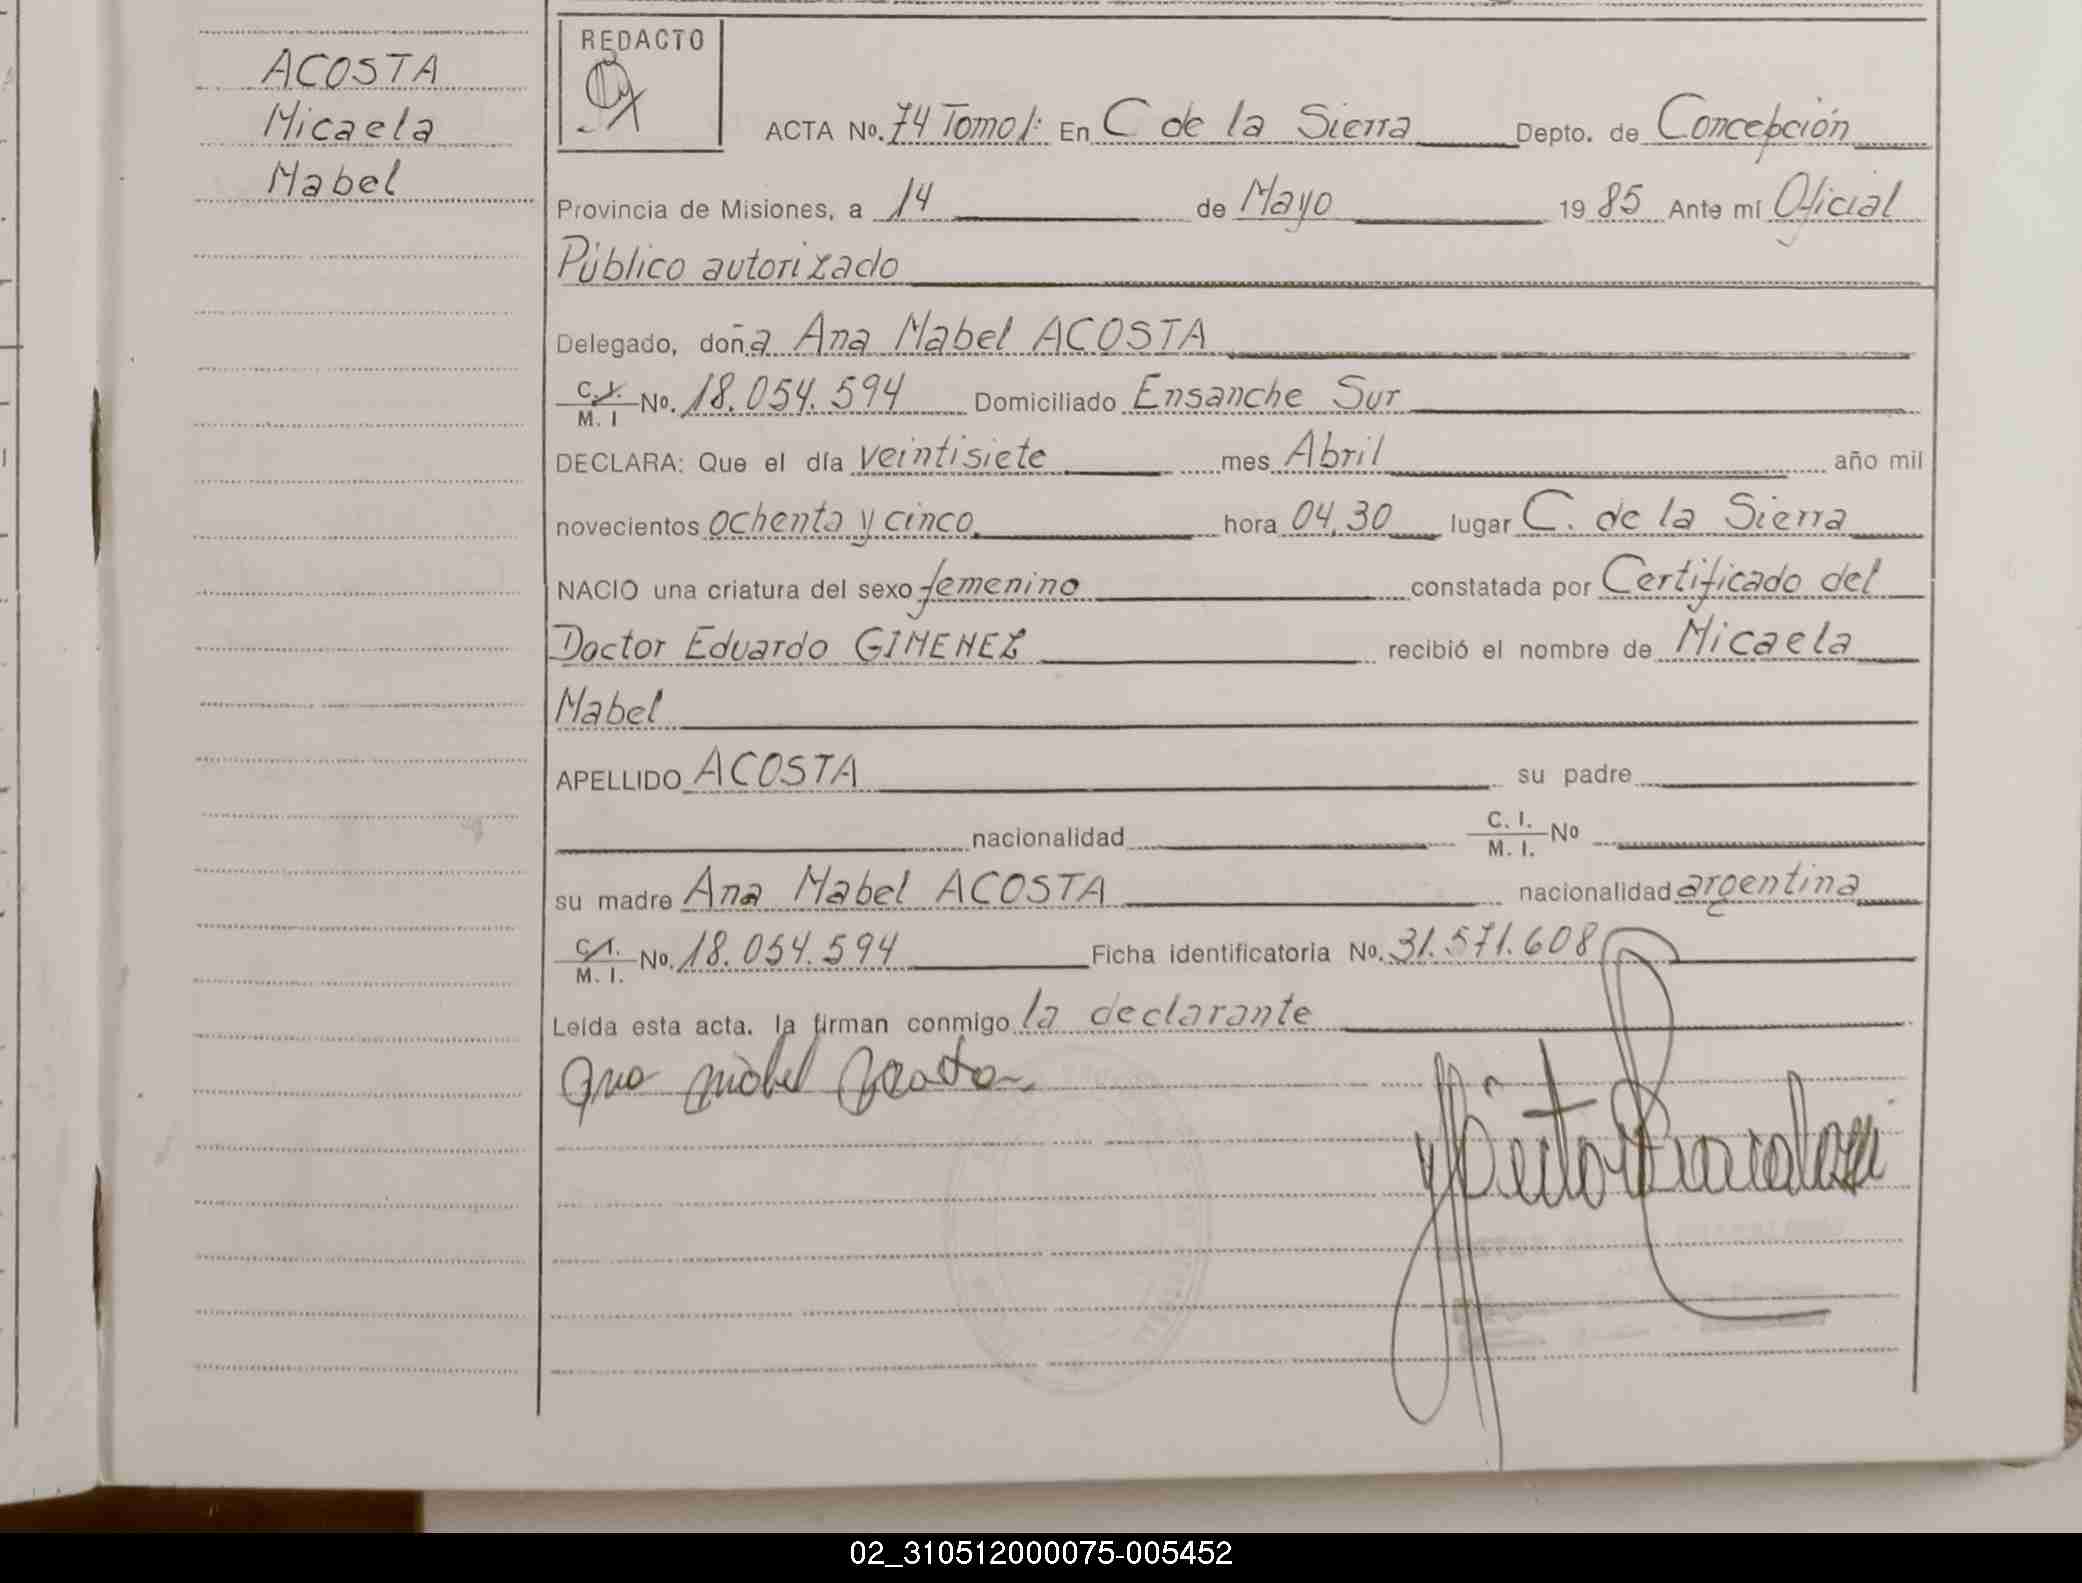 ACOSTA
Micaela
Mabel
REDACTO
ACTA No. 74 Tomo 1: En C de la Sierra Depto. de Concepción
Provincia de Misiones, a 14 de Mayo 1985 Ante mí Oficial
Público autorizado
Delegado, doña Ana Mabel ACOSTA
C.I. M. I No. 18.054.594 Domiciliado Ensanche Sur
DECLARA: Que el día veintisiete mes Abril año mil
novecientos ochenta y cinco hora 04,30 lugar C. de la Sierra
NACIO una criatura del sexo femenino constatada por Certificado del
Doctor Eduardo GIMENEZ recibió el nombre de Micaela
Mabel
APELLIDO ACOSTA su padre
nacionalidad C. I. M. I. No
su madre Ana Mabel ACOSTA nacionalidad argentina
C.I. M. I. No. 18.054.594 Ficha identificatoria No. 31.571.608
Leída esta acta. la firman conmigo la declarante
Ana Mabel Acosta
02_310512000075-005452